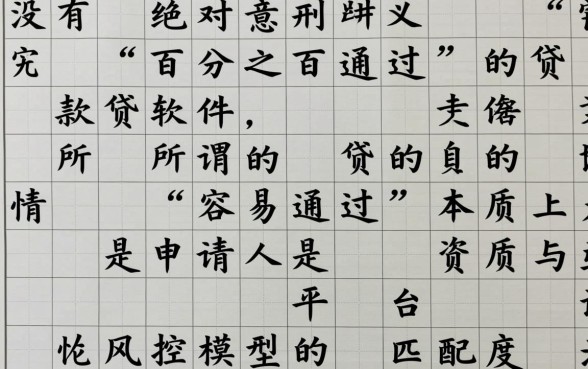 没有 绝对意刑 义 “
“百分之百通过”的贷
款贷软件，
所 所谓的 贷的 的
情 “容易通过”本质上
是申请人是 资质与
平 台
风控模型的 匹配度